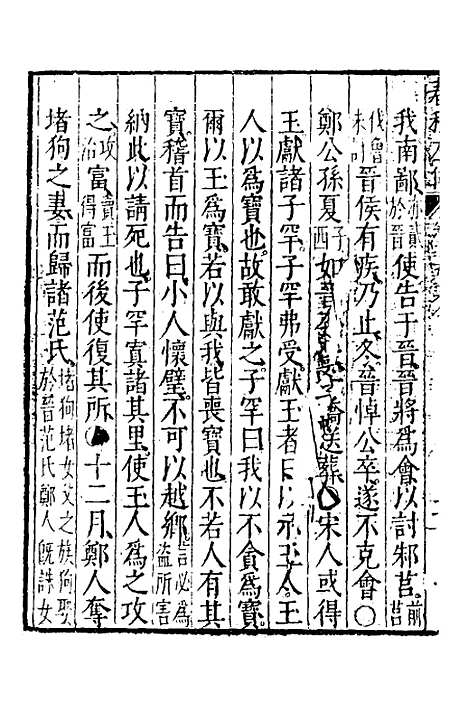 我南鄙亦貳於晉使告于晉晉將爲會以討邾莒前莒
伐魯未討晉侯有疾乃止冬晉悼公卒遂不克會〇
鄭公孫夏子西如晉奔喪子蟜送葬〇宋人或得
玉獻諸子罕子罕弗受獻玉者曰以示玉人玉
人以爲寶也故敢獻之子罕曰我以不貪爲寶
爾以玉爲寶若以與我皆喪寶也不若人有其
寶稽首而告曰小人懷璧不可以越鄉言必爲盜所害
納此以請死也子罕寘諸其里使玉人爲之攻
之攻治富賣玉得富而後使復其所十二月鄭人奪
堵狗之妻而歸諸范氏堵狗堵女父之族狗娶於晉范氏鄭人既誅女